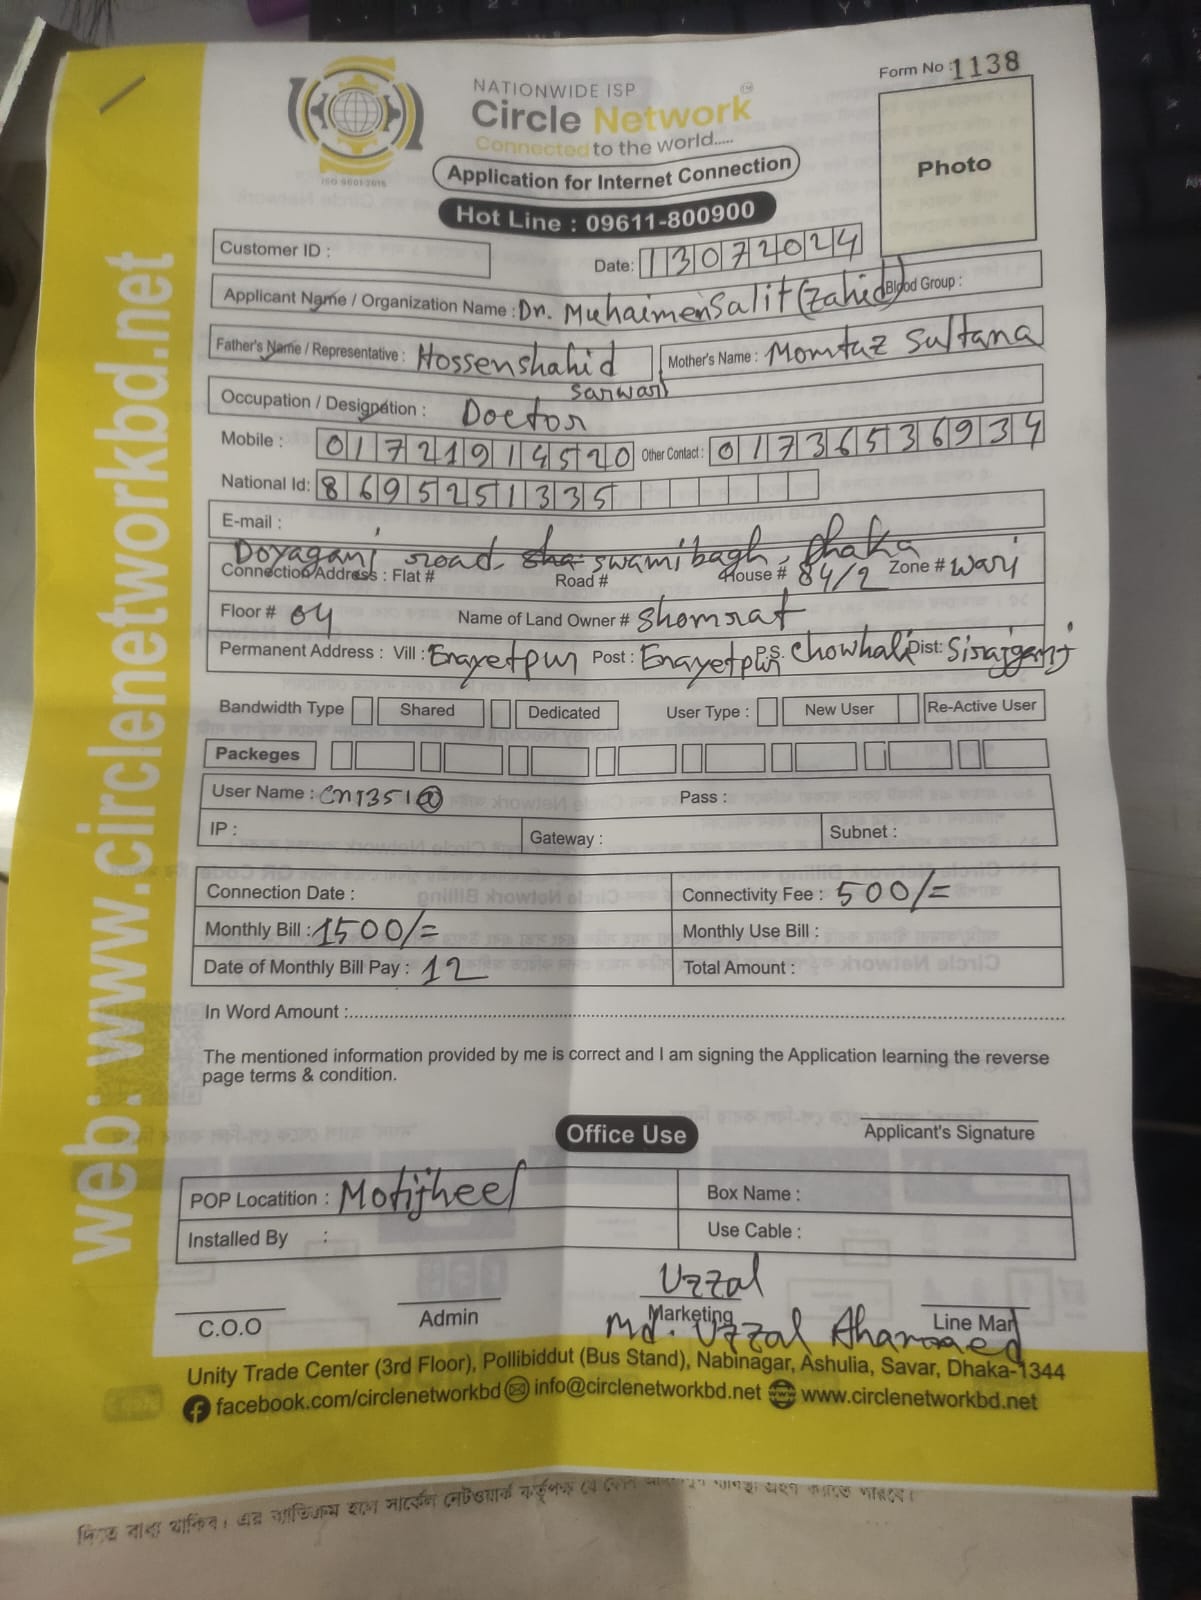 Form No : 1138
NATIONWIDE ISP
Circle Network
Connected to the world.....
ISO 9001:2015
Photo
Application for Internet Connection
Hot Line : 09611-800900
Customer ID :
Date: 13072024
Applicant Name / Organization Name : Dr. Muhaimen Salit (Zahid) Blood Group :
Father's Name / Representative : Hossenshahid Sarwari Mother's Name : Momtaz Sultana
Occupation / Designation : Doctor
Mobile : 01721914520 Other Contact : 01736536934
National Id: 8695251335
E-mail :
Doyaganj road swamibagh, Dhaka
Connection Address : Flat # Road # House # 84/2 Zone # wari
Floor # 04 Name of Land Owner # Shomrat
Permanent Address : Vill : Enayetpur Post : Enayetpur P.S. Chowhali Dist: Sirajganj
Bandwidth Type Shared Dedicated User Type : New User Re-Active User
Packeges
User Name : cn1351@ Pass :
IP : Gateway : Subnet :
Connection Date : Connectivity Fee : 500/=
Monthly Bill : 1500/= Monthly Use Bill :
Date of Monthly Bill Pay : 12 Total Amount :
In Word Amount :
The mentioned information provided by me is correct and I am signing the Application learning the reverse
page terms & condition.
Office Use
Applicant's Signature
POP Locatition : Motijheel Box Name :
Installed By : Use Cable :
Uzzal
C.O.O Admin Marketing Line Man
Md. Uzzal Ahammed
Unity Trade Center (3rd Floor), Pollibiddut (Bus Stand), Nabinagar, Ashulia, Savar, Dhaka-1344
facebook.com/circlenetworkbd info@circlenetworkbd.net www.circlenetworkbd.net
web: www.circlenetworkbd.net
দিতে বাধ্য থাকিব। এর ব্যতিক্রম হলে সার্কেল নেটওয়ার্ক কর্তৃপক্ষ যে কোন ব্যবস্থা গ্রহন করতে পারবে।